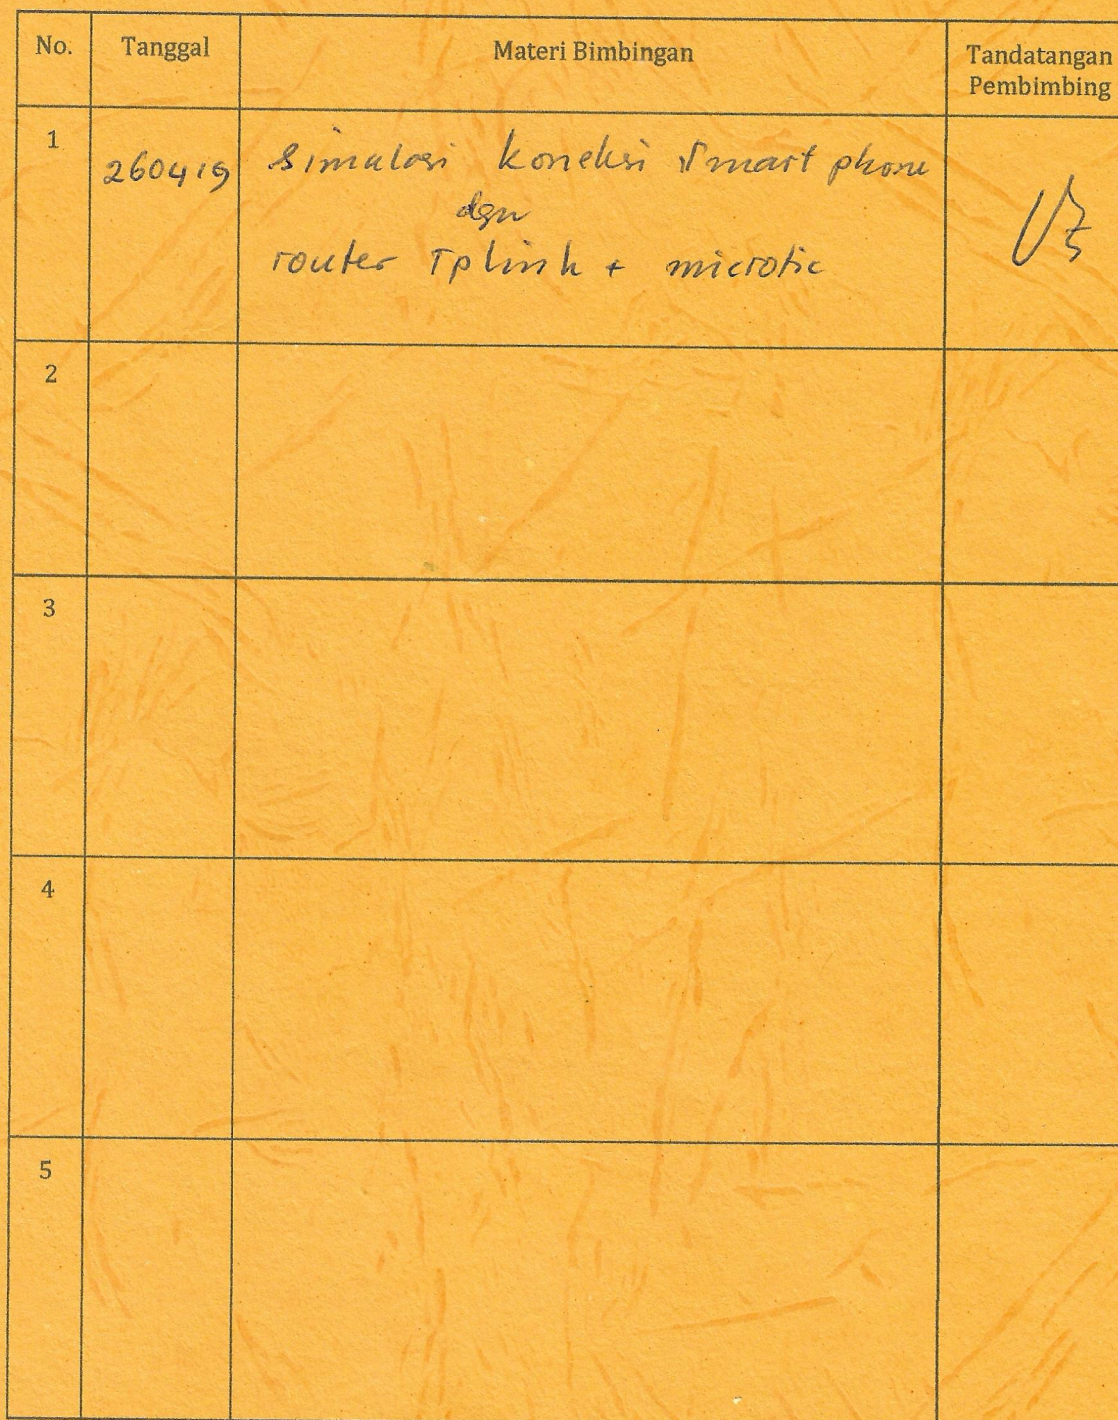 No. Tanggal Materi Bimbingan Tandatangan
Pembimbing
1 260419 Simulasi koneksi Smart phone
dgn
router Tplink + microtic
2
3
4
5